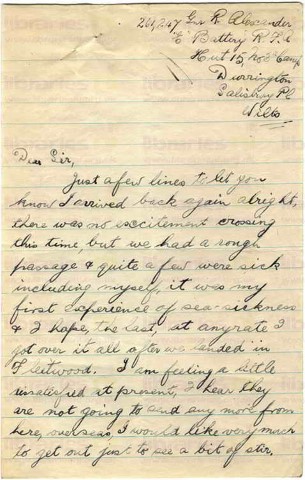 261,247 Gnr R. Alexander
"E" Battery R.F.A
Hut 15, No 3 Camp
Durrington
Salisbury Pl
Wilts
Dear Sir,
Just a few lines to let you
know I arrived back again alright,
there was no excitement crossing
this time, but we had a rough
passage & quite a few were sick
including myself, it was my
first experience of sea-sickness
& I hope, the last, at anyrate I
got over it all after we landed in
Fleetwood. I am feeling a little
unsatisfied at present, I hear they
are not going to send any more from
here, overseas, I would like very much
to get out just to see a bit of stir,